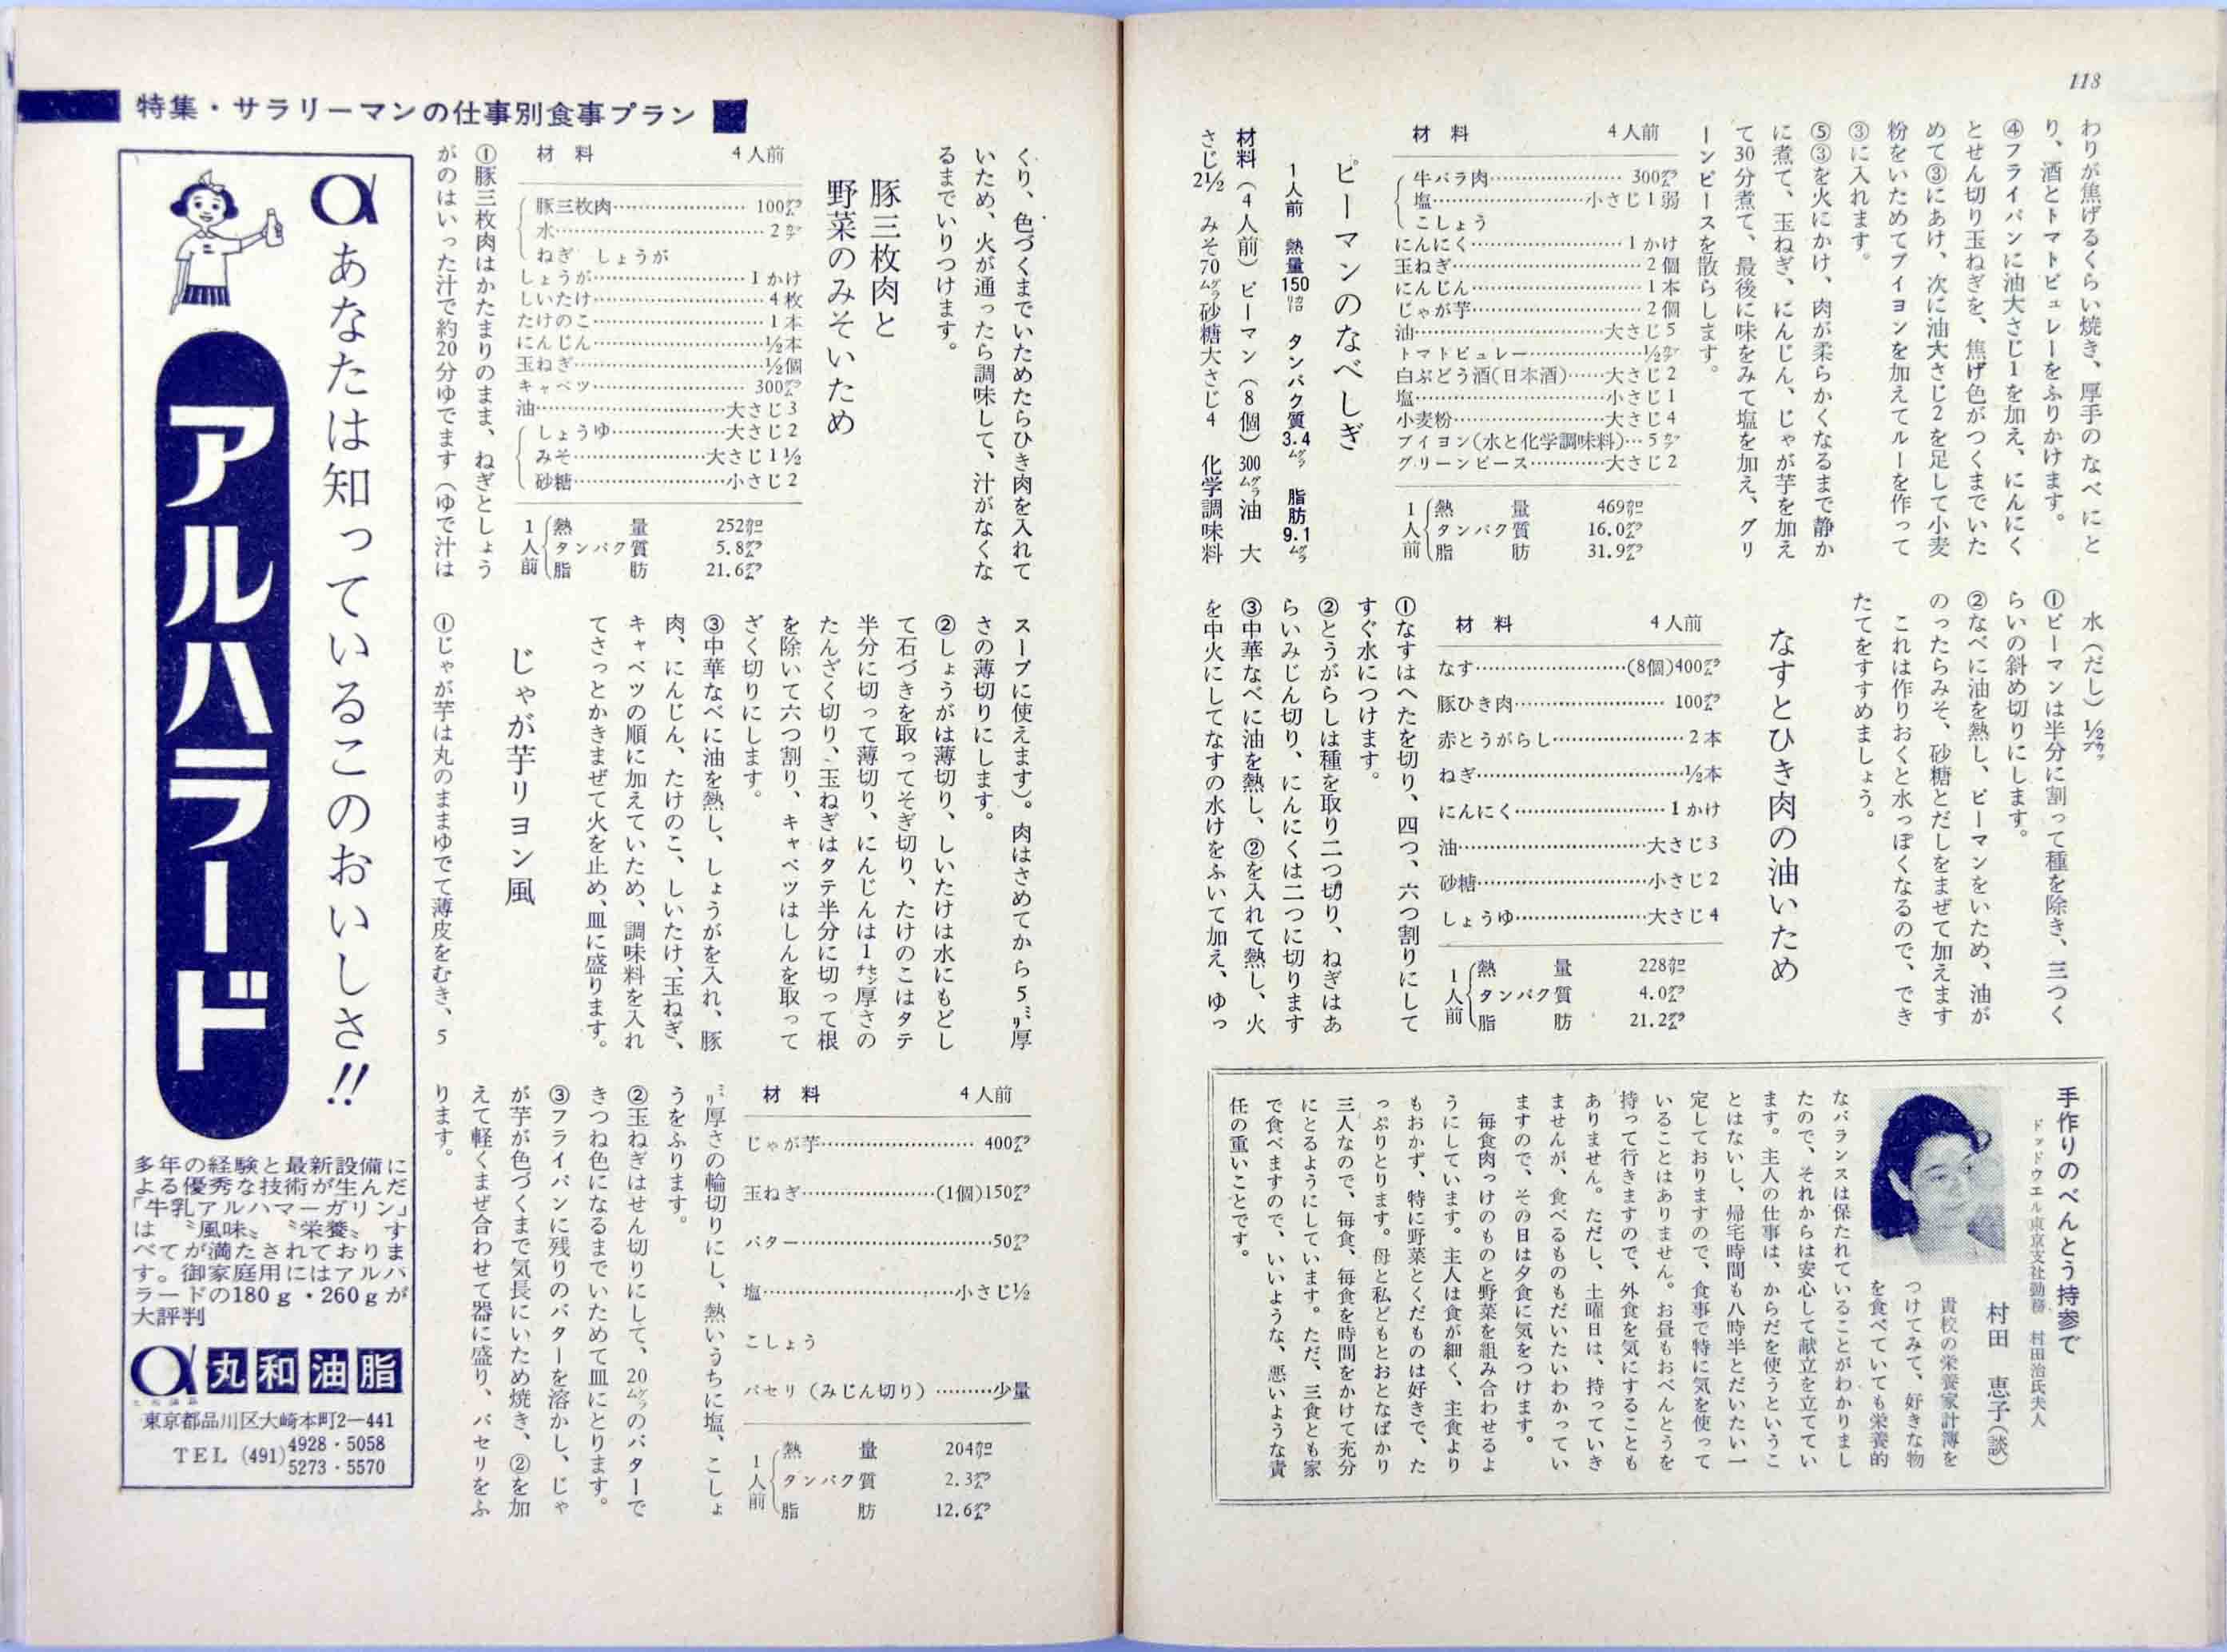 118
わりが焦げるくらい焼き、厚手のなべにと
り、酒とトマトピュレーをふりかけます。
④フライパンに油大さじ1を加え、にんにく
とせん切り玉ねぎを、焦げ色がつくまでいた
めて③にあけ、次に油大さじ2を足して小麦
粉をいためてブイヨンを加えてルーを作って
③に入れます。
⑤③を火にかけ、肉が柔らかくなるまで静か
に煮て、玉ねぎ、にんじん、じゃが芋を加え
て30分煮て、最後に味をみて塩を加え、グリ
ーンピースを散らします。
材料 4人前
牛バラ肉…………………300㌘
塩…………………小さじ1弱
こしょう
にんにく…………………1かけ
玉ねぎ…………………2個
にんじん…………………1本
じゃが芋…………………2個
油…………………大さじ5
トマトピュレー…………………½㌍
白ぶどう酒(日本酒)……大さじ2
塩…………………小さじ1
小麦粉…………………大さじ4
ブイヨン(水と化学調味料)…5㌍
グリーンピース…………大さじ2
1人前
熱量 469㌍
タンパク質 16.0㌘
脂肪 31.9㌘
ピーマンのなべしぎ
1人前 熱量150㌍ タンパク質3.4㌘ 脂肪9.1㌘
材料(4人前)ピーマン(8個)300㌘ 油 大
さじ2½ みそ70㌘ 砂糖大さじ4 化学調味料
水(だし)½カップ
①ピーマンは半分に割って種を除き、三つく
らいの斜め切りにします。
②なべに油を熱し、ピーマンをいため、油が
のったらみそ、砂糖とだしをまぜて加えます
これは作りおくと水っぽくなるので、でき
たてをすすめましょう。
なすとひき肉の油いため
材料 4人前
なす…………………(8個)400㌘
豚ひき肉…………………100㌘
赤とうがらし…………………2本
ねぎ…………………½本
にんにく…………………1かけ
油…………………大さじ3
砂糖…………………小さじ2
しょうゆ…………………大さじ4
1人前
熱量 228㌍
タンパク質 4.0㌘
脂肪 21.2㌘
①なすはへたを切り、四つ、六つ割りにして
すぐ水につけます。
②とうがらしは種を取り二つ切り、ねぎはあ
らいみじん切り、にんにくは二つに切ります
③中華なべに油を熱し、②を入れて熱し、火
を中火にしてなすの水けをふいて加え、ゆっ
手作りのべんとう持参で
ドッドウエル東京支社勤務 村田治氏夫人
村田 恵子(談)
貴校の栄養家計簿を
つけてみて、好きな物
を食べていても栄養的
なバランスは保たれていることがわかりまし
たので、それからは安心して献立を立ててい
ます。主人の仕事は、からだを使うというこ
とはないし、帰宅時間も八時半とだいたい一
定しておりますので、食事で特に気を使って
いることはありません。お昼もおべんとうを
持って行きますので、外食を気にすることも
ありません。ただし、土曜日は、持っていき
ませんが、食べるものもだいたいわかってい
ますので、その日は夕食に気をつけます。
毎食肉っけのものと野菜を組み合わせるよ
うにしています。主人は食が細く、主食より
もおかず、特に野菜とくだものは好きで、た
っぷりとります。母と私どもとおとなばかり
三人なので、毎食、毎食を時間をかけて充分
にとるようにしています。ただ、三食とも家
で食べますので、いいような、悪いような責
任の重いことです。
特集・サラリーマンの仕事別食事プラン
くり、色づくまでいためたらひき肉を入れて
いため、火が通ったら調味して、汁がなくな
るまでいりつけます。
豚三枚肉と
野菜のみそいため
材料 4人前
豚三枚肉…………………100㌘
水…………………2㌍
ねぎ しょうが
しょうが…………………1かけ
しいたけ…………………4枚
たけのこ…………………1本
にんじん…………………½本
玉ねぎ…………………½個
キャベツ…………………300㌘
油…………………大さじ3
しょうゆ…………………大さじ2
みそ…………………大さじ1½
砂糖…………………小さじ2
1人前
熱量 252㌍
タンパク質 5.8㌘
脂肪 21.6㌘
①豚三枚肉はかたまりのまま、ねぎとしょう
がのはいった汁で約20分ゆでます(ゆで汁は
スープに使えます)。肉はさめてから5㍉厚
さの薄切りにします。
②しょうがは薄切り、しいたけは水にもどし
て石づきを取ってそぎ切り、たけのこはタテ
半分に切って薄切り、にんじんは1㌢厚さの
たんざく切り、玉ねぎはタテ半分に切って根
を除いて六つ割り、キャベツはしんを取って
ざく切りにします。
③中華なべに油を熱し、しょうがを入れ、豚
肉、にんじん、たけのこ、しいたけ、玉ねぎ、
キャベツの順に加えていため、調味料を入れ
てさっとかきまぜて火を止め、皿に盛ります。
じゃが芋リヨン風
①じゃが芋は丸のままゆでて薄皮をむき、5
材料 4人前
じゃが芋…………………400㌘
玉ねぎ…………………(1個)150㌘
バター…………………50㌘
塩…………………小さじ½
こしょう
パセリ(みじん切り)………少量
1人前
熱量 204㌍
タンパク質 2.3㌘
脂肪 12.6㌘
㍉厚さの輪切りにし、熱いうちに塩、こしょ
うをふります。
②玉ねぎはせん切りにして、20㌘のバターで
きつね色になるまでいためて皿にとります。
③フライパンに残りのバターを溶かし、じゃ
が芋が色づくまで気長にいため焼き、②を加
えて軽くまぜ合わせて器に盛り、パセリをふ
ります。
α あなたは知っているこのおいしさ!!
アルハラード
多年の経験と最新設備に
よる優秀な技術が生んだ
「牛乳アルハマーガリン」
は〝風味〟〝栄養〟す
べてが満たされておりま
す。御家庭用にはアルハ
ラードの180g・260gが
大評判
α 丸和油脂
東京都品川区大崎本町2―441
TEL (491) 4928・5058
5273・5570